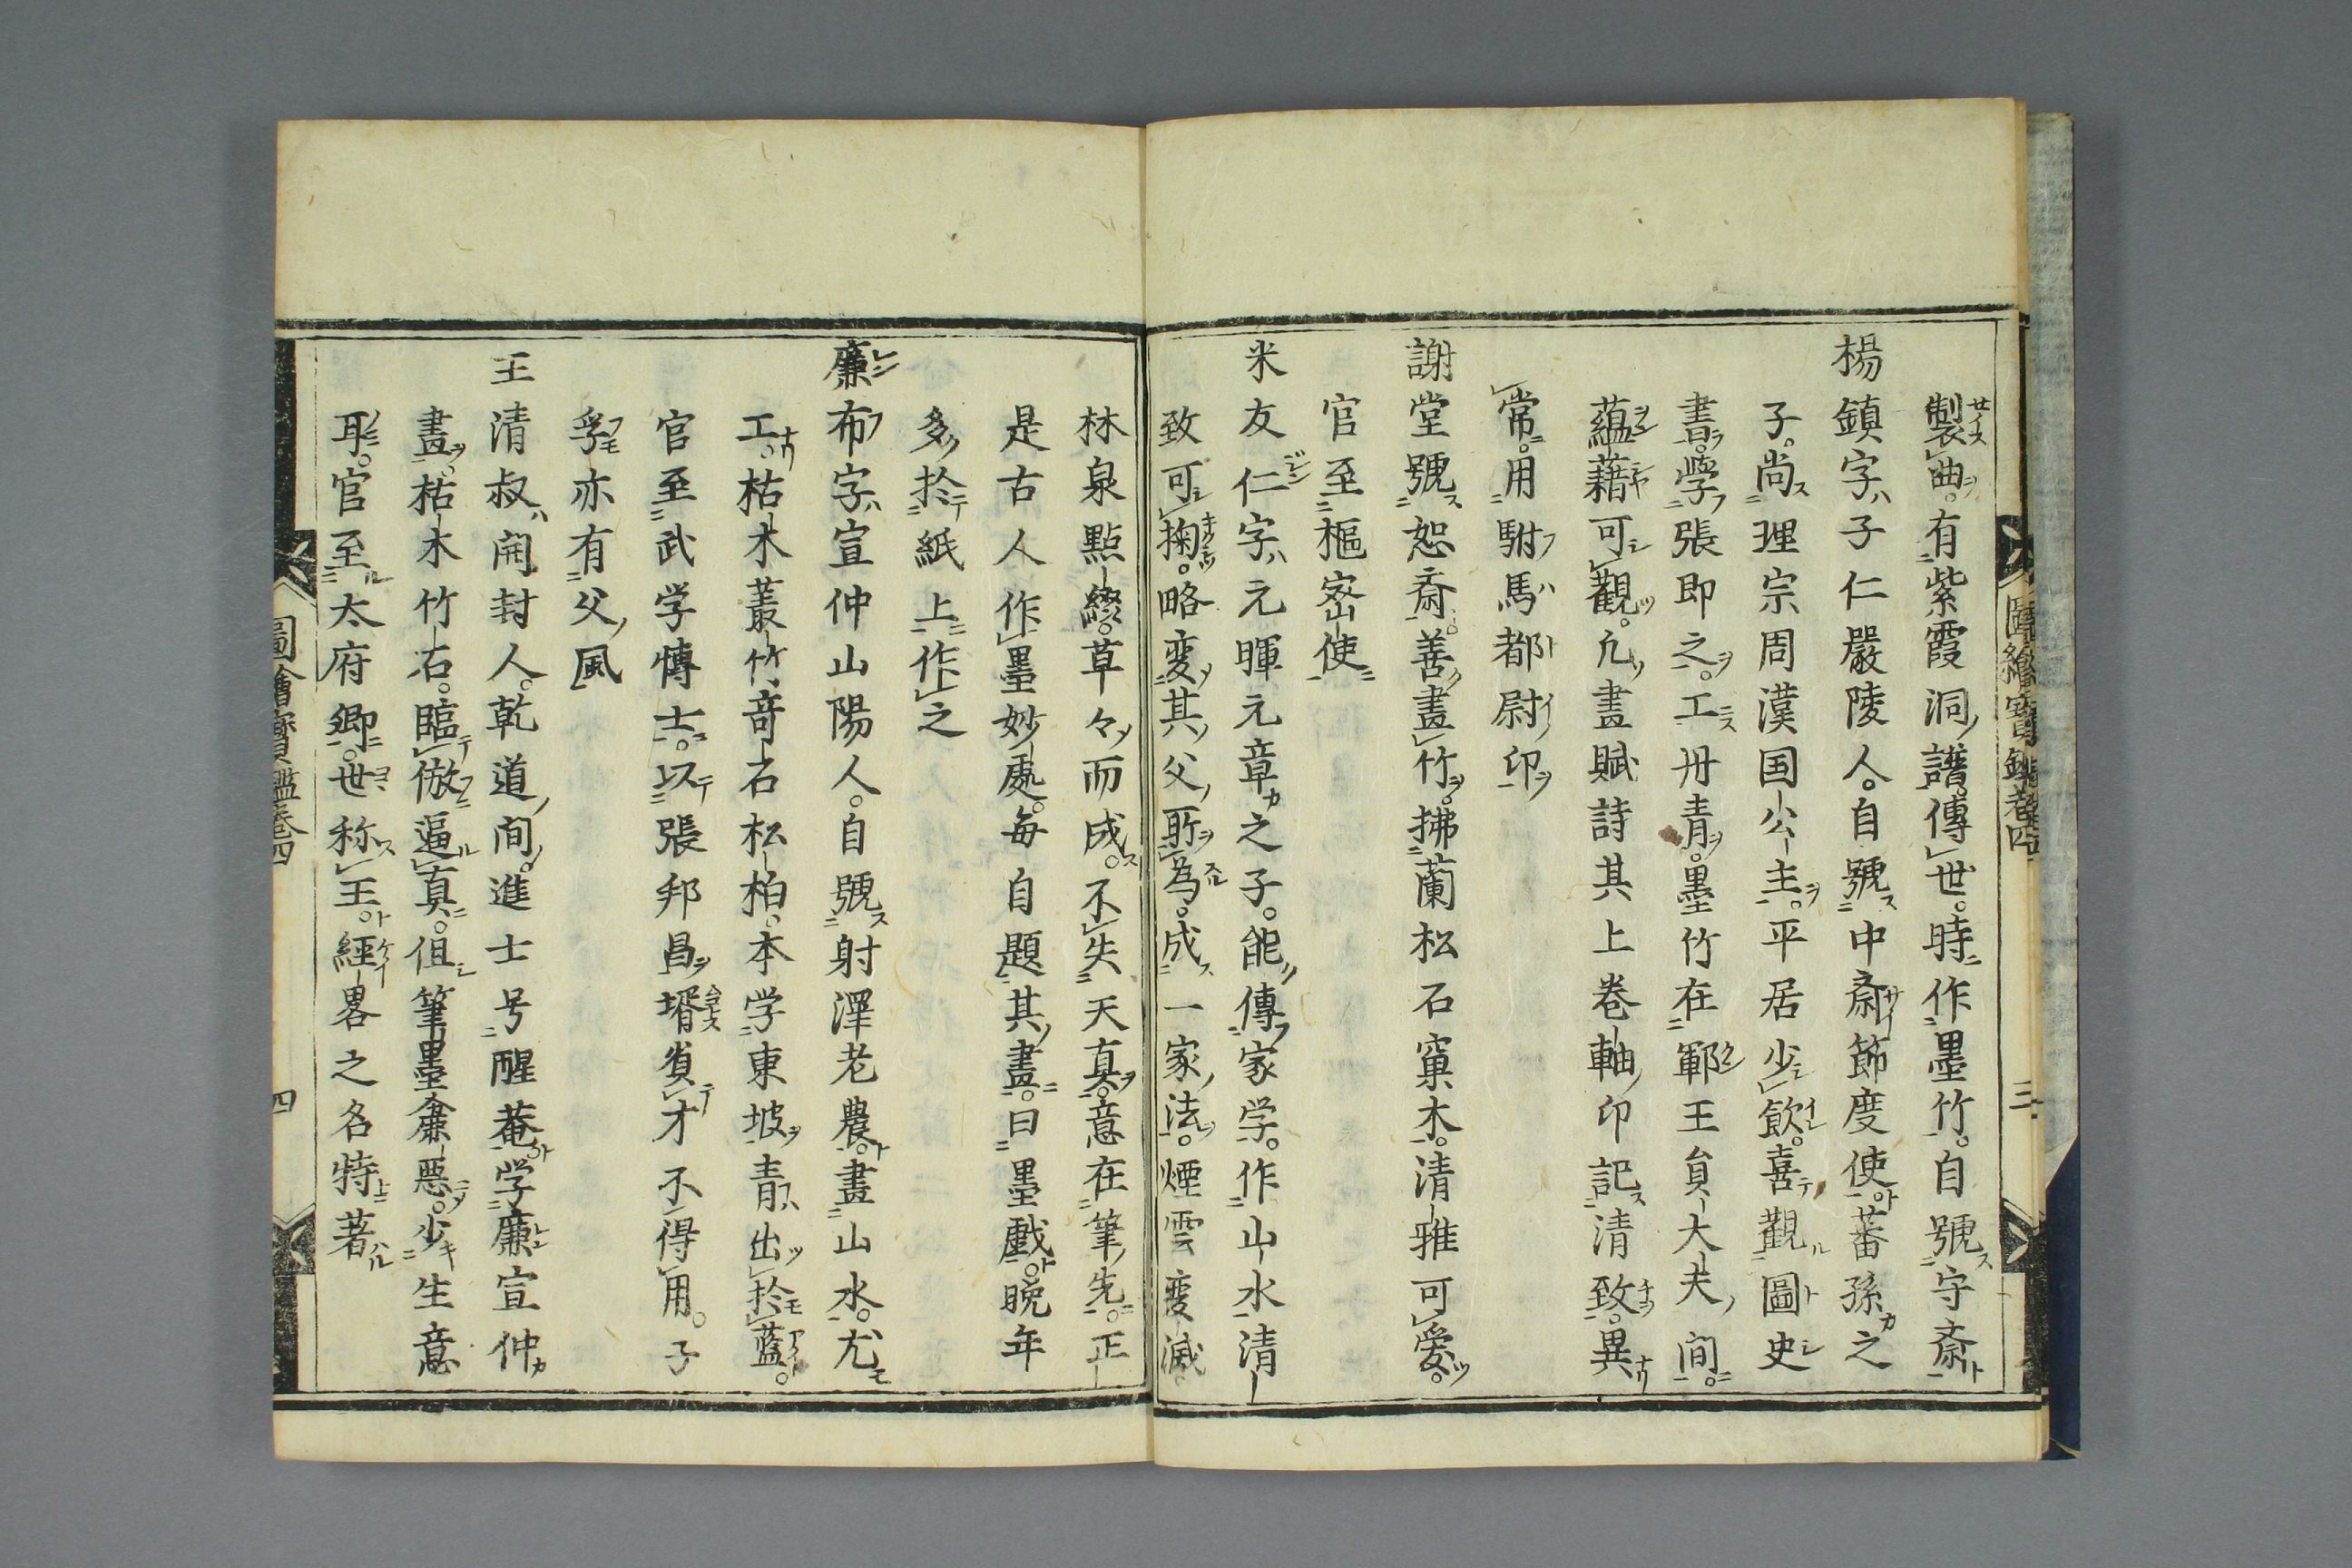 製曲有紫霞洞譜傳世時作墨竹自號守斎
楊鎮字子仁嚴陵人自號中斎節度使蕃孫之
子尚理宗周漢国公主平居少飲喜觀圖史
書學張即之工丹青墨竹在鄆王貟大夫間
蘊藉可觀凢畫賦詩其上卷軸印記清致異
常用駙馬都尉印
謝堂號恕斎善畫竹拂蘭松石窠木清雅可愛
官至樞密使
米友仁字元暉元章之子能傳家学作山水清
致可掬略変其父所為成一家法煙雲変滅
林泉點綴草々而成不失天真意在筆先正
是古人作墨妙處每自題其畫曰墨戲晚年
多於紙上作之
廉布字宣仲山陽人自號射澤老農畫山水尤
工枯木叢竹竒石松柏本学東坡青出於藍
官至武学博士以張邦昌壻貟才不得用子
孚亦有父風
王清叔開封人乾道間進士号醒菴学廉宣仲
畫枯木竹石臨倣逼真但筆墨麁惡少生意
耳官至太府卿世称王經畧之名特著
圖繪寳鑑卷四
三
圖繪寳鑑卷四
四